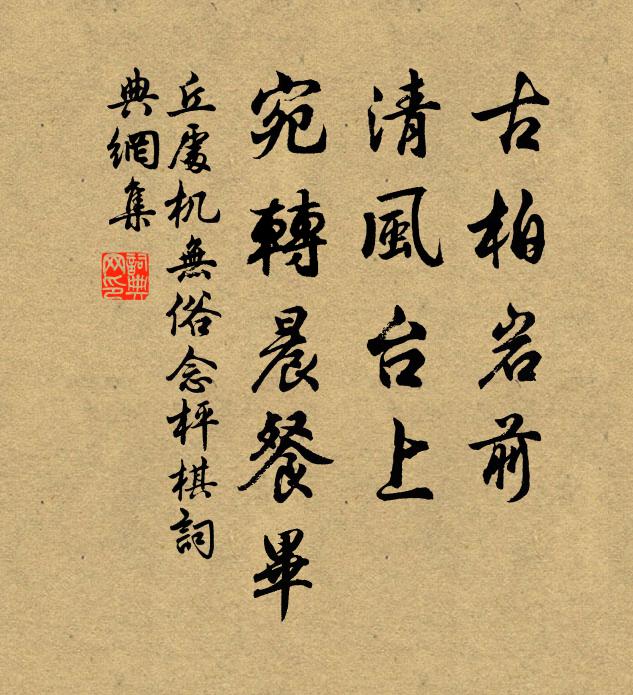 古柏岩前
清風台上
宛轉晨餐畢
丘處机無俗念枰棋詞
典網集
詞典網印